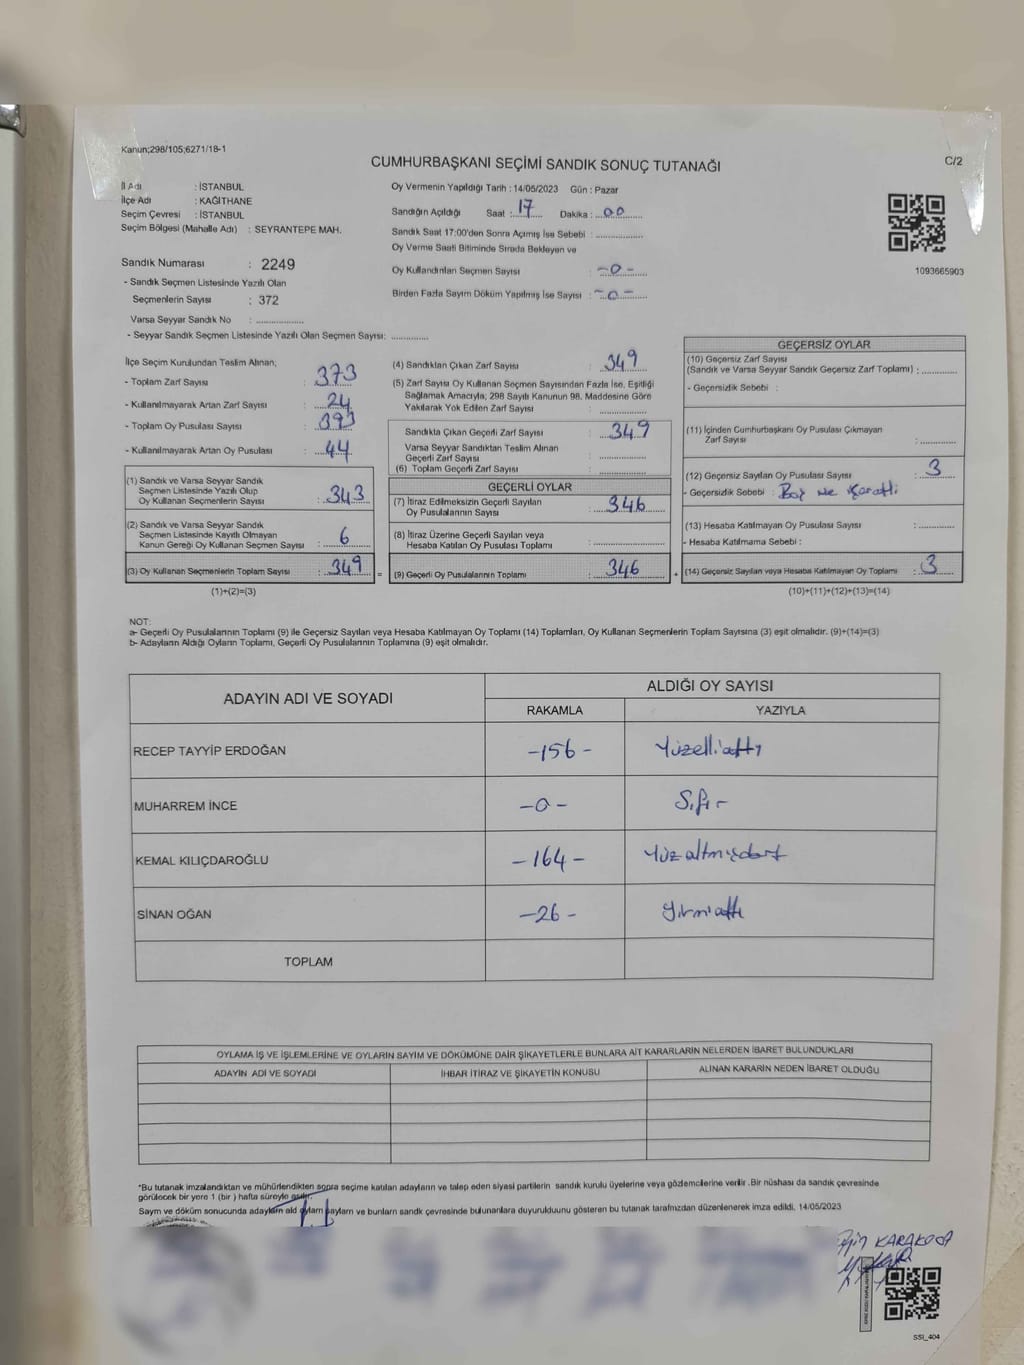 Kanun;298/105;6271/18-1
CUMHURBAŞKANI SEÇİMİ SANDIK SONUÇ TUTANAĞI
C/2
İl Adı : İSTANBUL
İlçe Adı : KAĞITHANE
Seçim Çevresi : İSTANBUL
Seçim Bölgesi (Mahalle Adı) : SEYRANTEPE MAH.
Sandık Numarası : 2249
- Sandık Seçmen Listesinde Yazılı Olan
Seçmenlerin Sayısı : 372
Varsa Seyyar Sandık No : ..................
- Seyyar Sandık Seçmen Listesinde Yazılı Olan Seçmen Sayısı: ..............
Oy Vermenin Yapıldığı Tarih : 14/05/2023 Gün : Pazar
Sandığın Açıldığı Saat : 17 Dakika : 00
Sandık Saat 17:00'den Sonra Açımış İse Sebebi : ..................
Oy Verme Saati Bitiminde Sırada Bekleyen ve
Oy Kullandırılan Seçmen Sayısı : -0-
Birden Fazla Sayım Döküm Yapılmış İse Sayısı : -0-
1093665903
İlçe Seçim Kurulundan Teslim Alınan;
- Toplam Zarf Sayısı : 373
- Kullanılmayarak Artan Zarf Sayısı : 24
- Toplam Oy Pusulası Sayısı : 393
- Kullanılmayarak Artan Oy Pusulası : 44
(1) Sandık ve Varsa Seyyar Sandık
Seçmen Listesinde Yazılı Olup
Oy Kullanan Seçmenlerin Sayısı : 343
(2) Sandık ve Varsa Seyyar Sandık
Seçmen Listesinde Kayıtlı Olmayan
Kanun Gereği Oy Kullanan Seçmen Sayısı : 6
(3) Oy Kullanan Seçmenlerin Toplam Sayısı : 349 =
(1)+(2)=(3)
(4) Sandıktan Çıkan Zarf Sayısı : 349
(5) Zarf Sayısı Oy Kullanan Seçmen Sayısından Fazla İse, Eşitliği
Sağlamak Amacıyla; 298 Sayılı Kanunun 98. Maddesine Göre
Yakılarak Yok Edilen Zarf Sayısı : ..................
Sandıkta Çıkan Geçerli Zarf Sayısı : 349
Varsa Seyyar Sandıktan Teslim Alınan
Geçerli Zarf Sayısı : ..................
(6) Toplam Geçerli Zarf Sayısı : ..................
GEÇERLİ OYLAR
(7) İtiraz Edilmeksizin Geçerli Sayılan
Oy Pusulalarının Sayısı : 346
(8) İtiraz Üzerine Geçerli Sayılan veya
Hesaba Katılan Oy Pusulası Toplamı : ..................
(9) Geçerli Oy Pusulalarının Toplamı : 346 +
GEÇERSİZ OYLAR
(10) Geçersiz Zarf Sayısı
(Sandık ve Varsa Seyyar Sandık Geçersiz Zarf Toplamı) : ..............
- Geçersizlik Sebebi :
(11) İçinden Cumhurbaşkanı Oy Pusulası Çıkmayan
Zarf Sayısı : ..............
(12) Geçersiz Sayılan Oy Pusulası Sayısı : 3
- Geçersizlik Sebebi :
(13) Hesaba Katılmayan Oy Pusulası Sayısı : ..............
- Hesaba Katılmama Sebebi :
(14) Geçersiz Sayılan veya Hesaba Katılmayan Oy Toplamı : 3
(10)+(11)+(12)+(13)=(14)
NOT:
a- Geçerli Oy Pusulalarının Toplamı (9) ile Geçersiz Sayılan veya Hesaba Katılmayan Oy Toplamı (14) Toplamları, Oy Kullanan Seçmenlerin Toplam Sayısına (3) eşit olmalıdır. (9)+(14)=(3)
b- Adayların Aldığı Oyların Toplamı, Geçerli Oy Pusulalarının Toplamına (9) eşit olmalıdır.
ADAYIN ADI VE SOYADI
ALDIĞI OY SAYISI
RAKAMLA YAZIYLA
RECEP TAYYİP ERDOĞAN -156- Yüzellialtı
MUHARREM İNCE -0- Sıfır
KEMAL KILIÇDAROĞLU -164- Yüzaltmışdört
SİNAN OĞAN -26- Yirmialtı
TOPLAM
OYLAMA İŞ VE İŞLEMLERİNE VE OYLARIN SAYIM VE DÖKÜMÜNE DAİR ŞİKAYETLERLE BUNLARA AİT KARARLARIN NELERDEN İBARET BULUNDUKLARI
ADAYIN ADI VE SOYADI İHBAR İTİRAZ VE ŞİKAYETİN KONUSU ALINAN KARARIN NEDEN İBARET OLDUĞU
*Bu tutanak imzalandıktan ve mühürlendikten sonra seçime katılan adayların ve talep eden siyasi partilerin sandık kurulu üyelerine veya gözlemcilerine verilir .Bir nüshası da sandık çevresinde
görülecek bir yere 1 (bir ) hafta süreyle asılır.
Sayım ve döküm sonucunda adayların ald oyların sayıların ve bunların sandık çevresinde bulunanlara duyurulduunu gösteren bu tutanak tarafımızdan düzenlenerek imza edildi. 14/05/2023
KARAKOCA
SSI_404